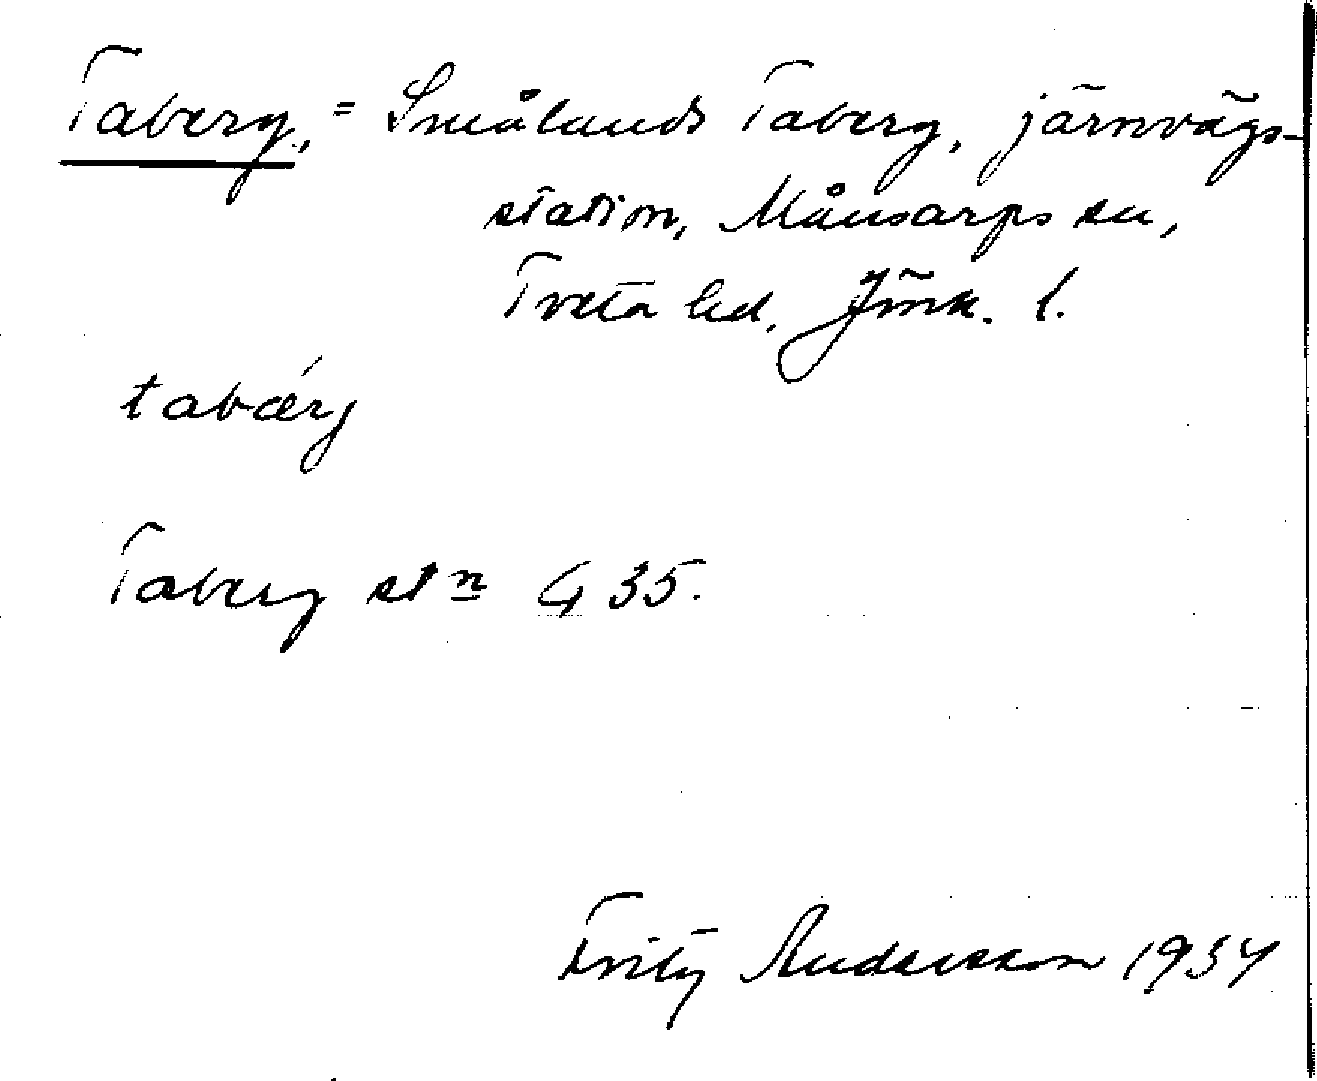 Taberg, = Smålands Taberg, järnvägs-
station, Månsarps sn,
Tveta hd, Jönk. l.
tabæ´rj
Taberg stn G 35.
Fritz Andersson 1934